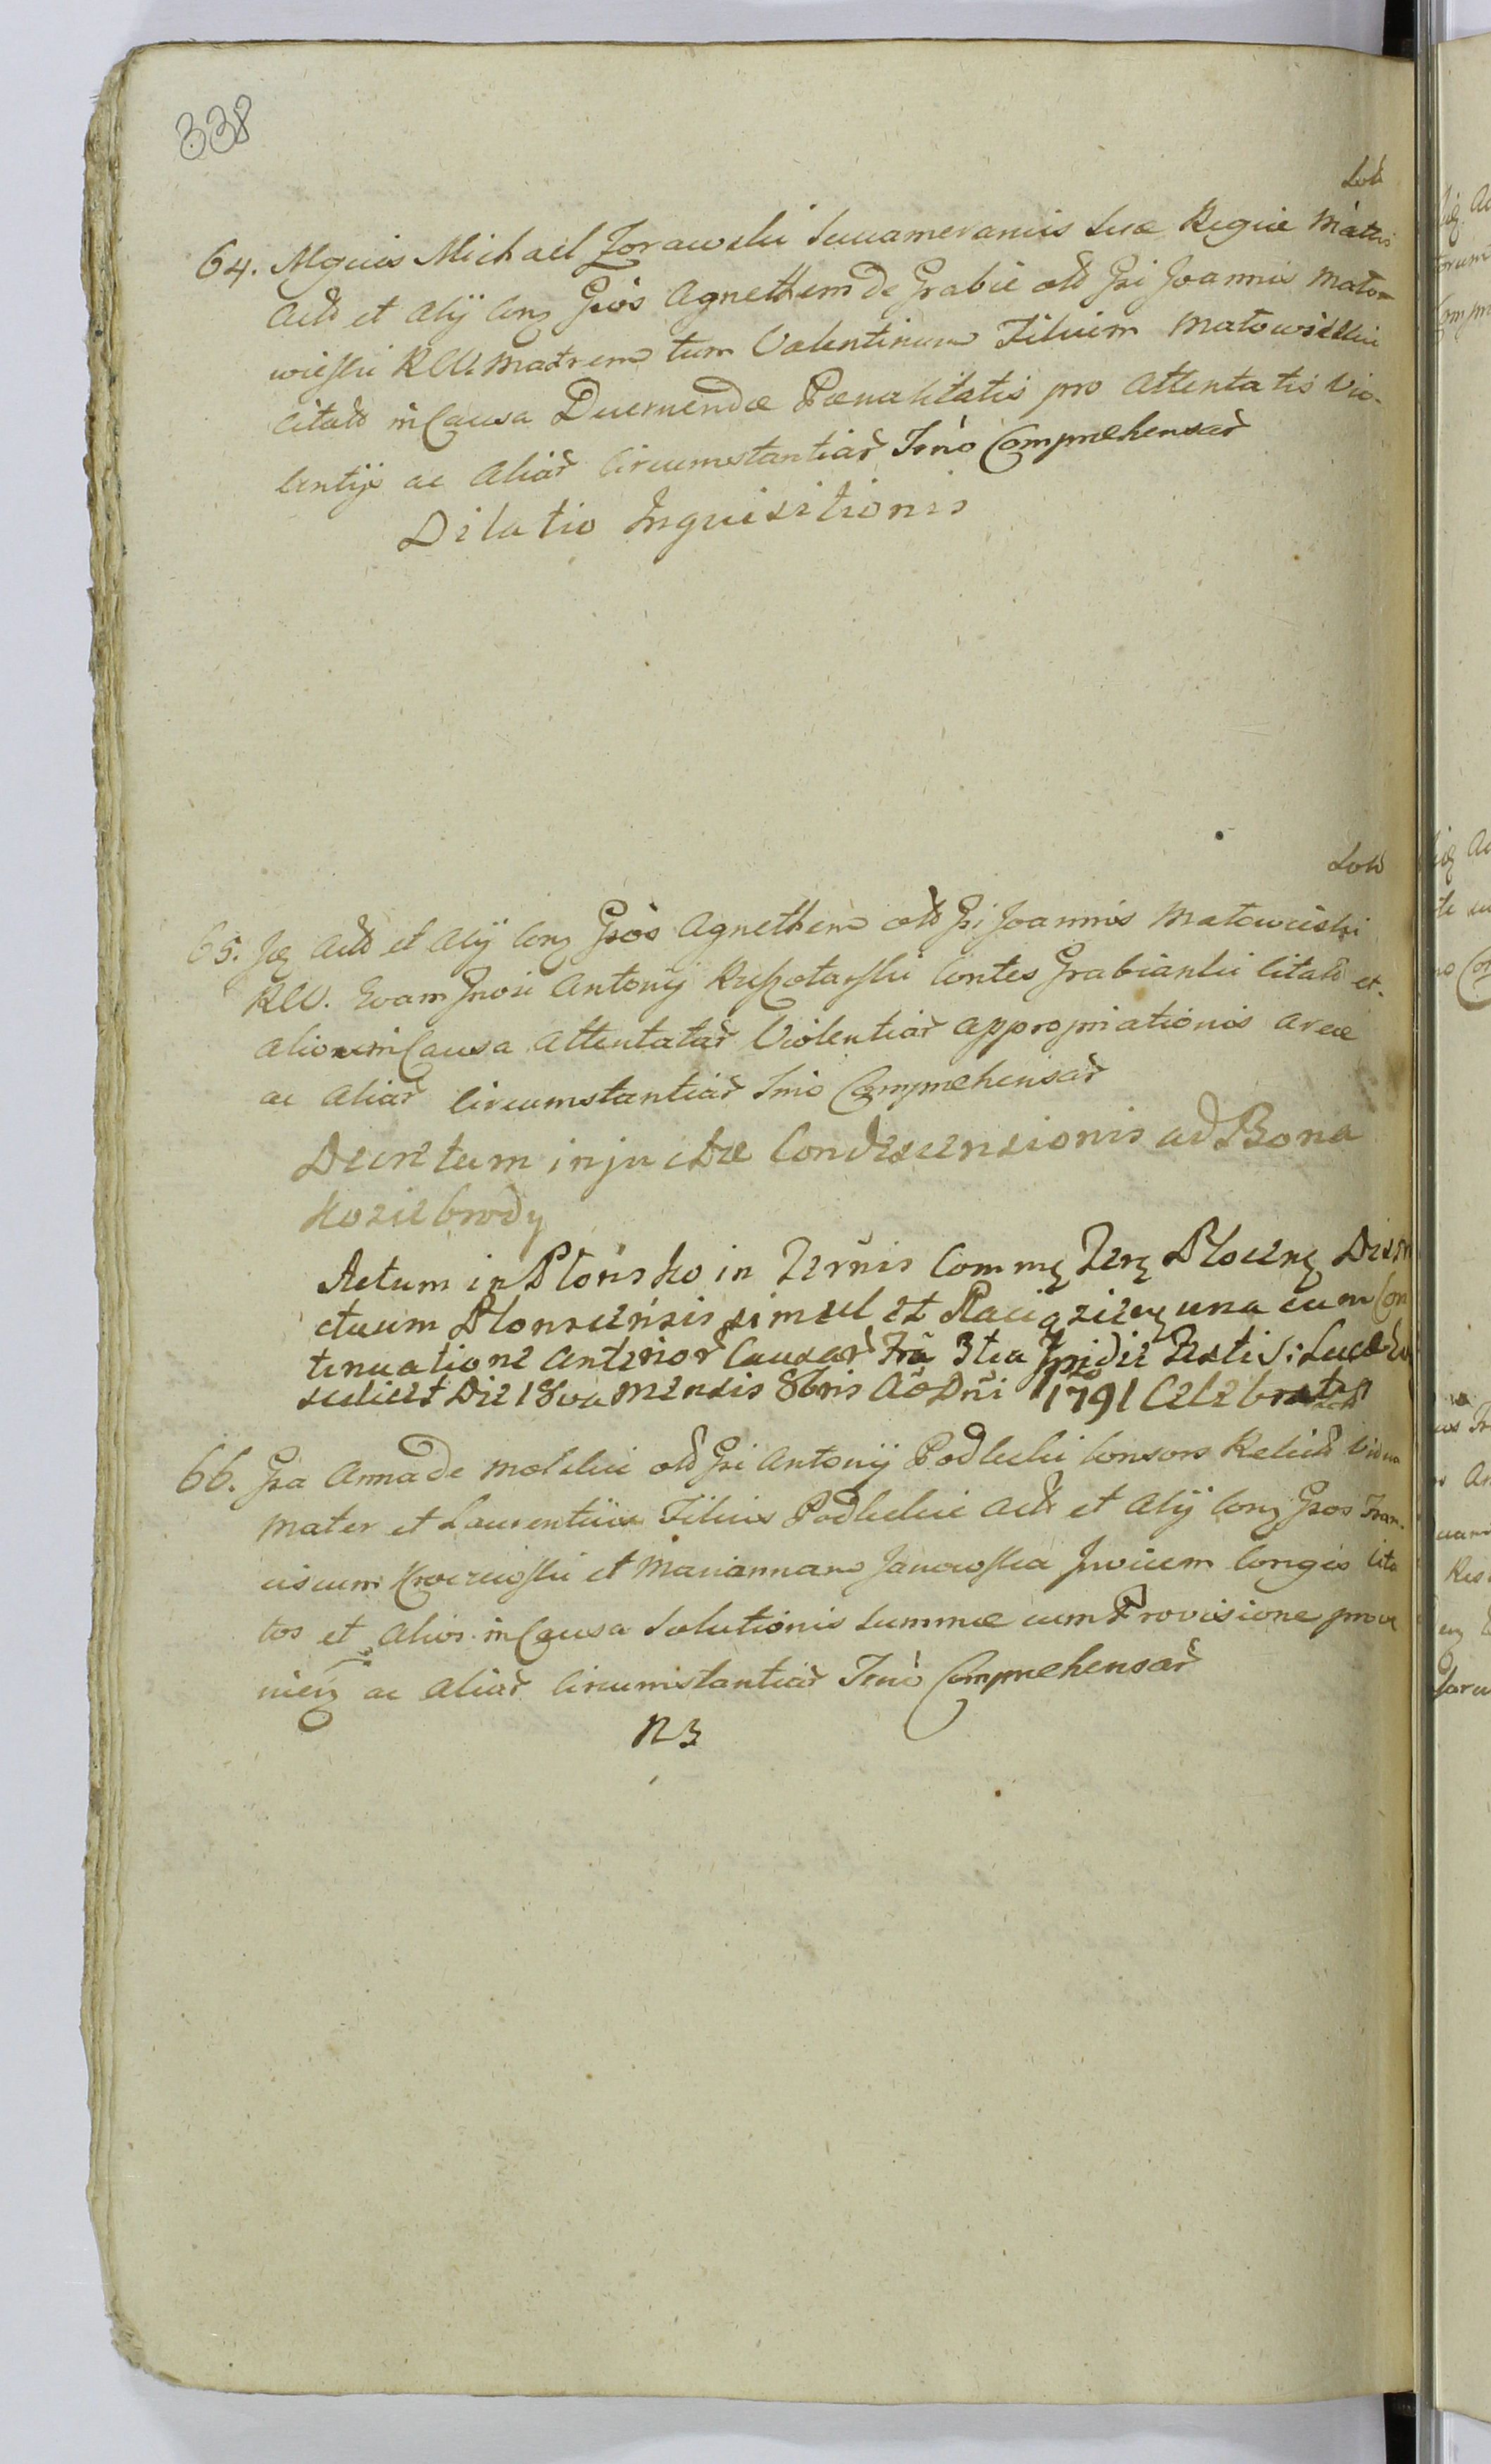 338
Sol
64. Mgcus Michael Zorawski Succamerarius Suae Regiae Mattis
Actd et Alij Conz Gsos Agnethem de Grabie old Gsi Joannis Mato-
wieski RW. Matrem tum Valentinum Filium Matowieski
Citatd in Causa Decernendae Paenalitatis pro Attentatis Vio-
lentijs ac Aliar Circumstantiar Trno Comprehensar
Dilatio Inquisitionis
Sold
65. Jdz Actd et Alij Conz Gsos Agnethem old Gsi Joannis Matowieski
RW. Evam Gnosi Antonij Contes Grabianki Citatd et
alior in Causa Attentatar Violentiar appropriationis areae
ac Aliar Circumstantiar Trno Comprehensar
Decretum injuctae Condescensionis ad Bona
Koziebrody
Actum in Płońsko in Termis Commz Terz Plocenz Distri
ctuum Plonscensis simul et Raciązienz una cum Con
tinuatione Anterior Causar Fra 3tia Ipsi die Festi S: Lucae
scilicet Die 18va Mensis 8bris Ao Dni 1791 Celebratis
Sold
66. Gsa Anna de Molskie old Gsi Antonij Podlecki Consors Relictd Vidua
Mater et Laurentius Filius Podleckie Actd et Alij Conz Gsos Fran-
ciscum et Mariannam Janowska Invicem Conges Cita
tos et Alios in Causa Solutionis Summae cum Provisione prove
nienz ac Aliar Circumstantiar Trno Comprehensar
N3